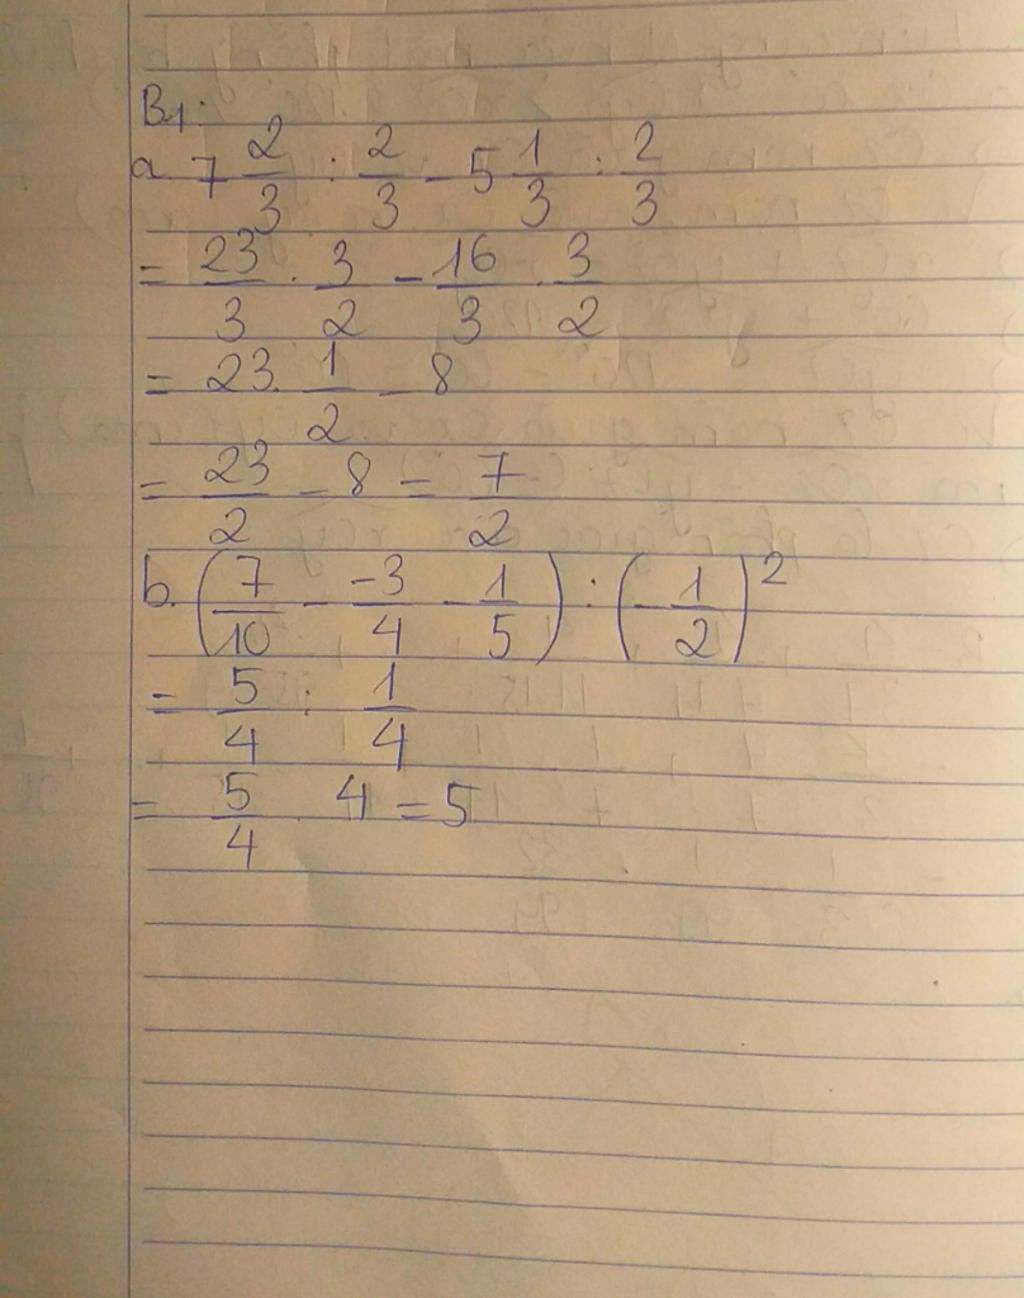 B1:
a. 7 2/3 : 2/3 - 5 1/3 : 2/3
= 23/3 . 3/2 - 16/3 . 3/2
= 23 . 1/2 - 8
= 23/2 - 8 = 7/2
b. (7/10 - -3/4 - 1/5) : (-1/2)²
= 5/4 : 1/4
= 5/4 . 4 = 5